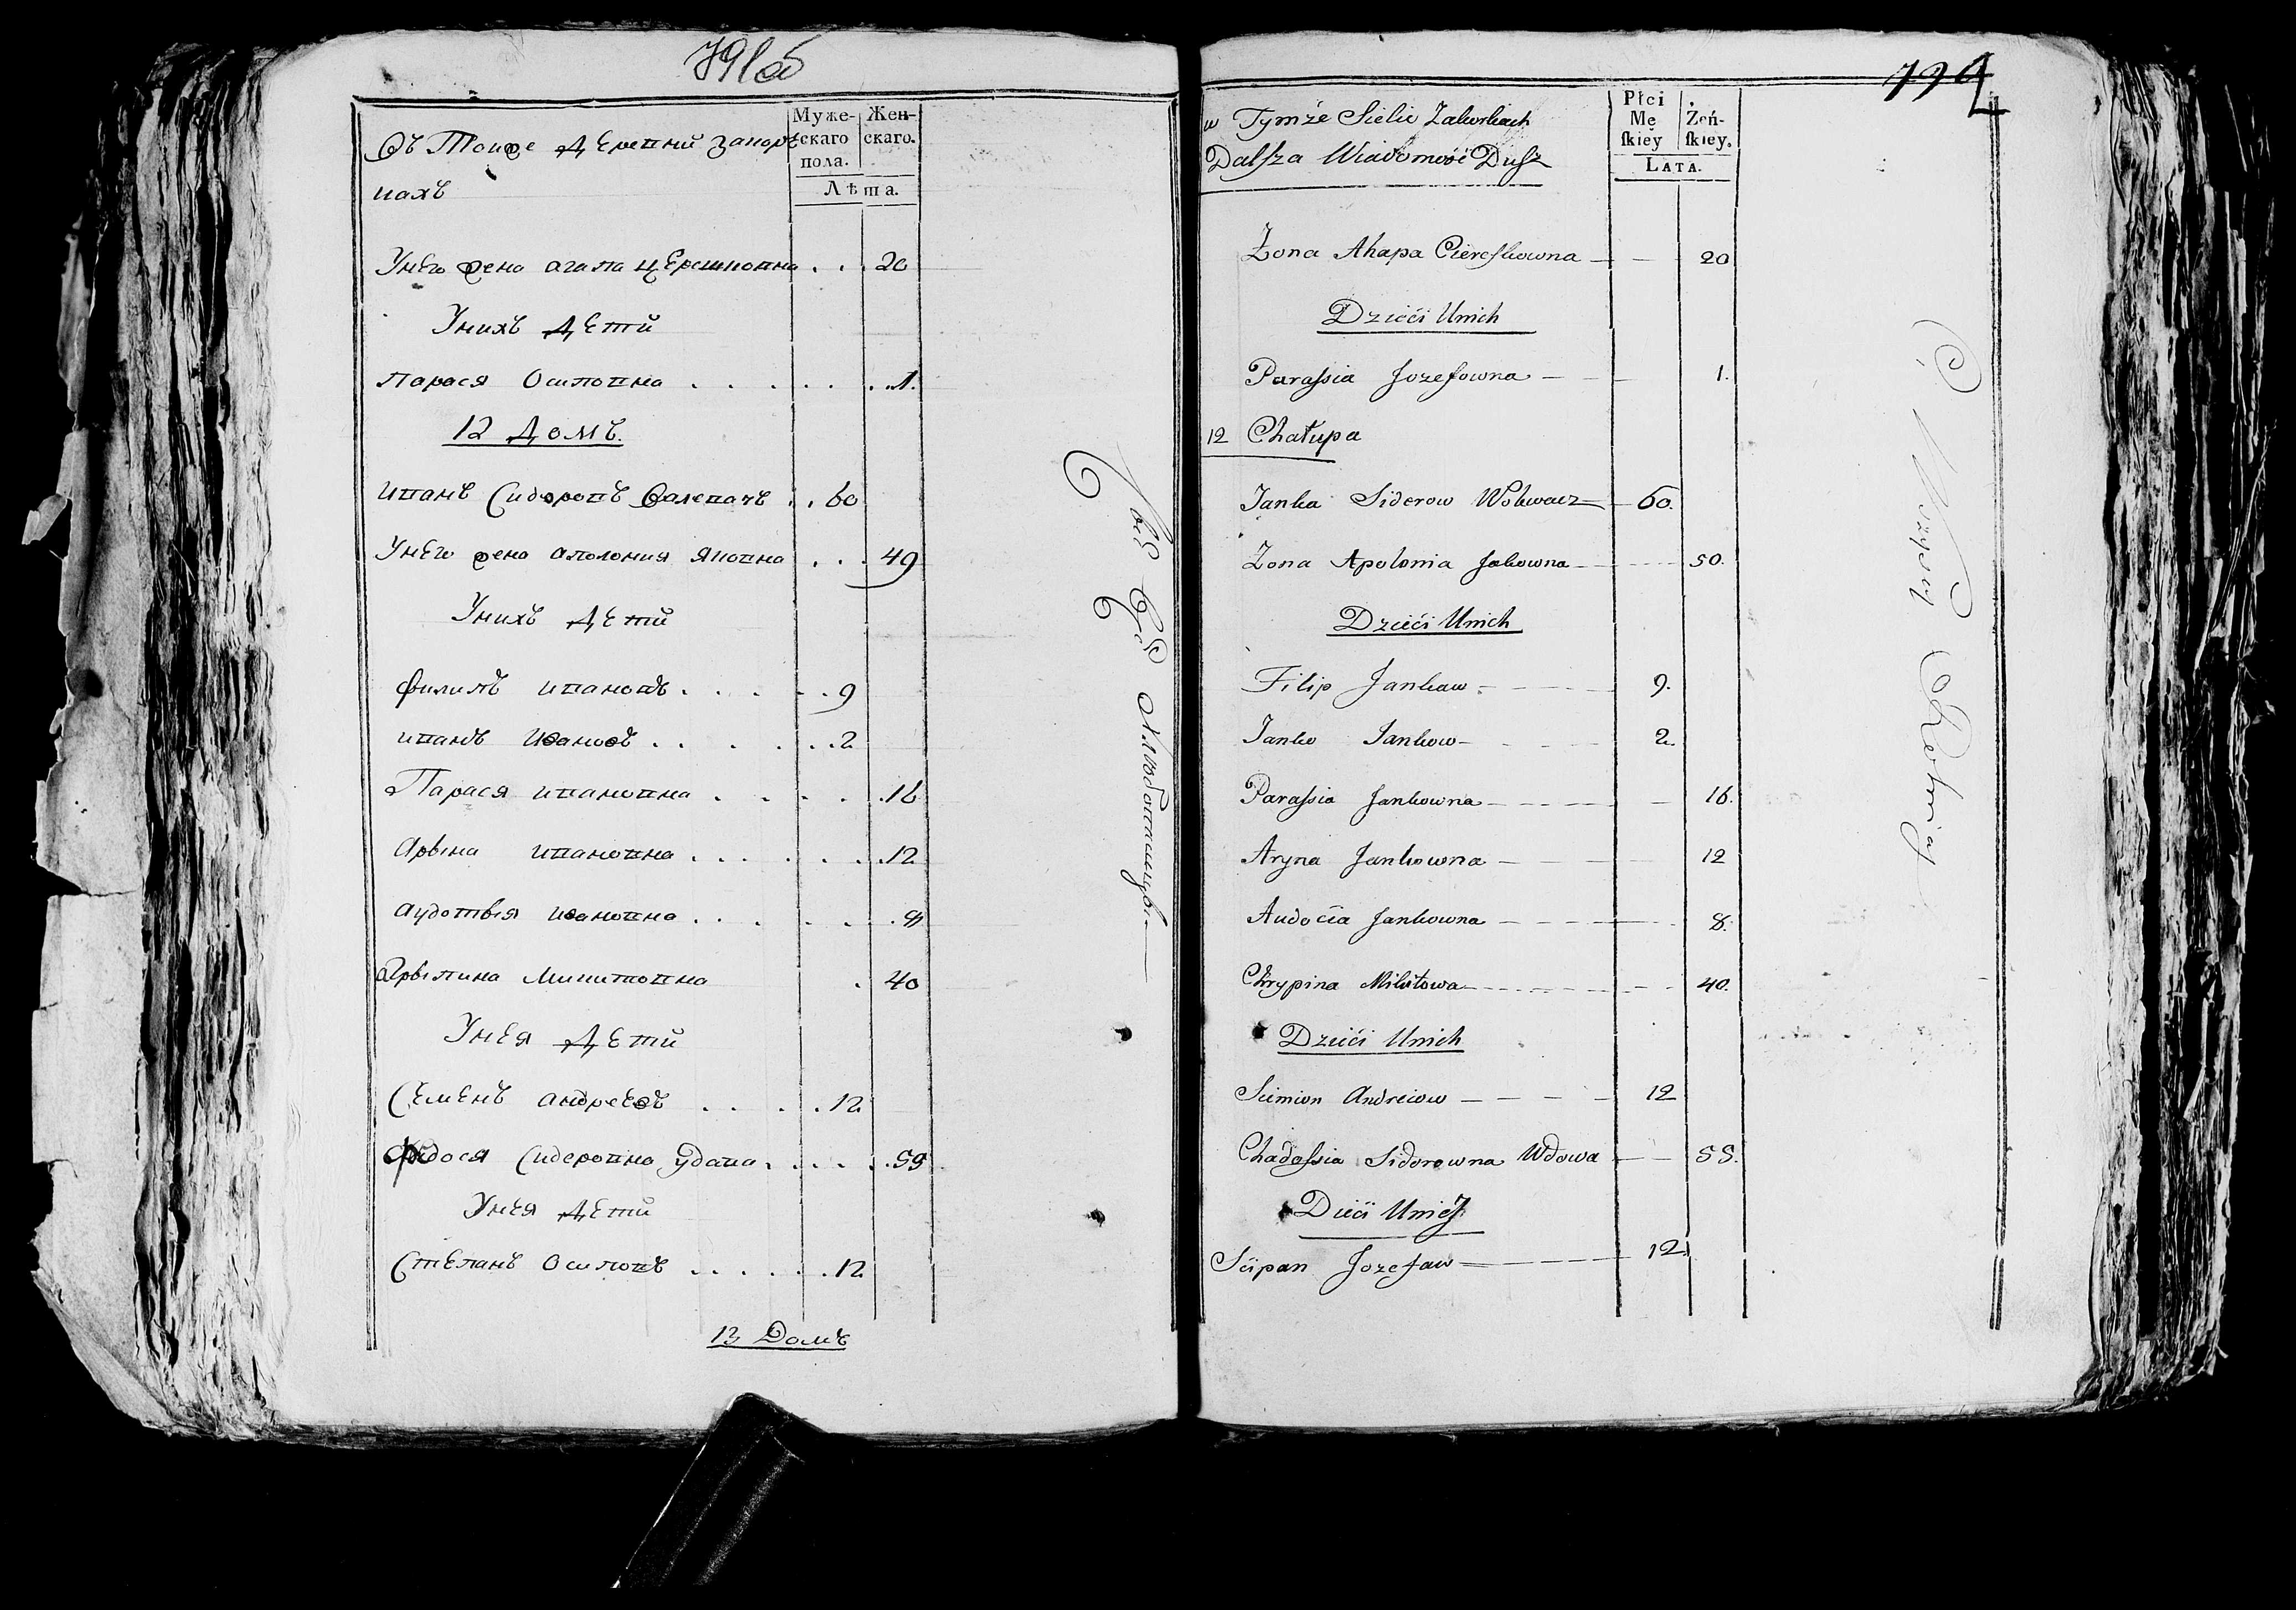 791об
Въ Тойже Деревни Закор
кахъ
Муже-
скаго
пола.
Жен-
скаго.
Лѣта.
Унего жена агапа церешковна . . . 20
Унихъ Дети
Парася Осиповна . . . . . . . 1.
12 Домъ.
иванъ Сидоровъ . . 60
Унего жена аполония яковна . . . 49
Унихъ Дети
Филипъ ивановъ . . . . . 9
иванъ Ивановъ . . . . . . . 2
Парася ивановна . . . . . 16
Арына ивановна . . . . . . . 12
аудотья ивановна . . . . . . 8
Хрыпина Микитовна . 40
Унея Дети
Семенъ андреевъ . . . . . 12
Сидоровна удова . . . . . 55
Унея Дети
Степанъ Осиповъ . . . . . . . 12
13 Домъ
794
w Tymże Sielie Zakorkach
Dalſza Wiadomość Duſz
Płci
Mę
ſkiey
Żeń-
ſkiey.
LATA.
Żona Ahapa Piereſkowna 20
Dzieći Unich
Paraſsia Jozefowna 1.
12 Chałupa
Janka Siderow Wolwacz 60.
Żona Apolonia Jakowna 50.
Dzieći Unich
Filip Jankaw 9.
Janko Jankow 2.
Paraſsia Jankowna 16.
Aryna Jankowna 12
Audocia Jankowna 8.
Chrypina Mikitowa 40.
Dzieći Unich
Siemion Andreiow 12
Chadaſsia Sidorowna Wdowa 55.
Dieći Unieÿ
Sćipan Jozefaw 12.